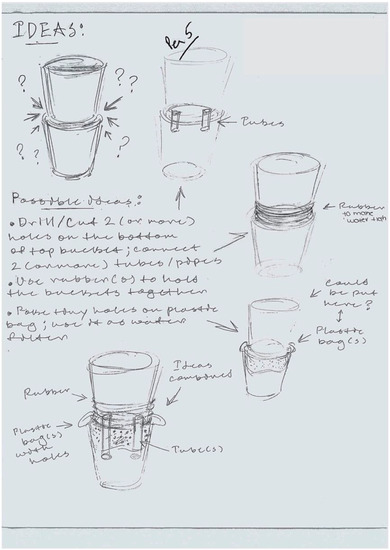 IDEAS:
Per 5
? ? ? ?
? ? ? ?
Tubes
Possible ideas:
• Drill/Cut 2 (or more)
holes on the bottom
of top bucket; connect
2 (or more) tubes/pipes
• Use rubber(s) to hold
the buckets together
• Poke tiny holes on plastic
bag; use it as water
filter
Rubber
to make
water tight
Could
be put
here?
Plastic
bag(s)
Rubber
Ideas
combined
Plastic
bag(s)
with
holes
Tube(s)